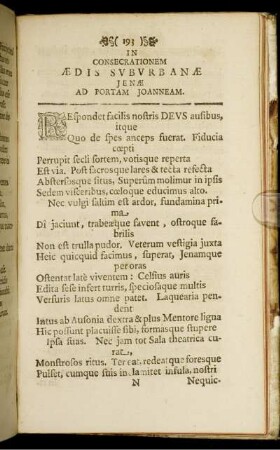 193
IN
CONSECRATIONEM
ÆDIS SVBVRBANÆ
JENÆ
AD PORTAM JOANNEAM.
REspondet facilis nostris DEVS ausibus,
itque
Quo de spes anceps fuerat. Fiducia
cœpti
Perrupit secli sortem, votisque reperta
Est via. Post sacrosque lares & tecta refecta
Abstersosque situs, Superûm molimur in ipsis
Sedem visceribus, cœloque educimus alto.
Nec vulgi saltim est ardor, fundamina pri-
ma
Dî jaciunt, trabeæque favent, ostroque fa-
brilis
Non est trulla pudor. Veterum vestigia juxta
Heic quicquid facimus, superat, Jenamque
per oras
Ostentat latè viventem: Celsius auris
Edita sese infert turris, speciosaque multis
Versuris latus omne patet. Laquearia pen-
dent
Intus ab Ausonia dextra & plus Mentore ligna
Hic possunt placuisse sibi, formasque stupere
Ipsa suas. Nec jam tot Sala theatrica cu-
rat
Monstrosos ritus. redeat que foresque
Pulset, cumque suis inclamitet insula, nostri
N Nequic-